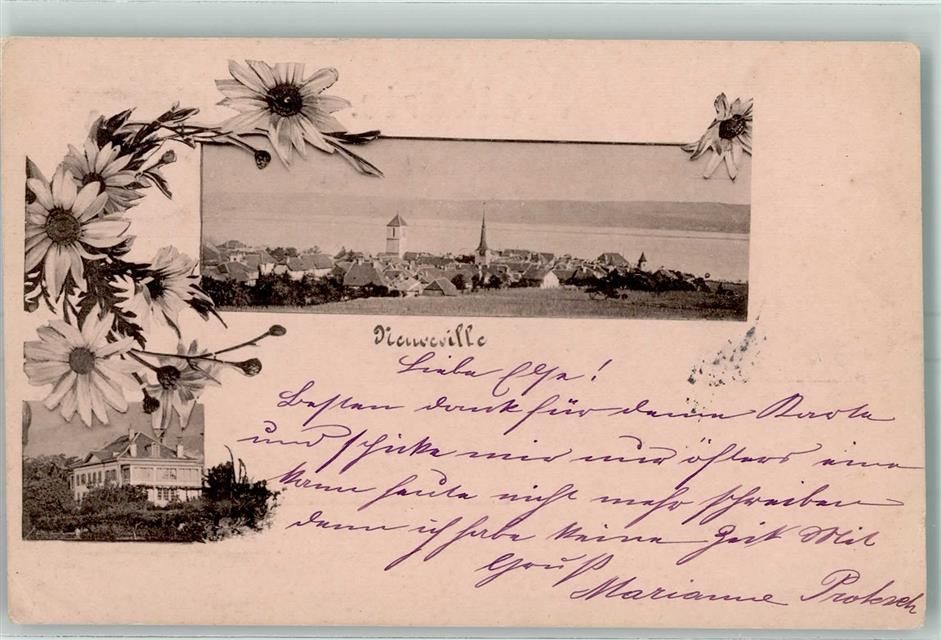 Neuveville
Liebe Else!
Besten dank für deine Karte
und schicke mir nur öfters eine
kann heute nicht mehr schreiben
denn ich habe keine Zeit Mit
Gruß
Marianne Prokesch